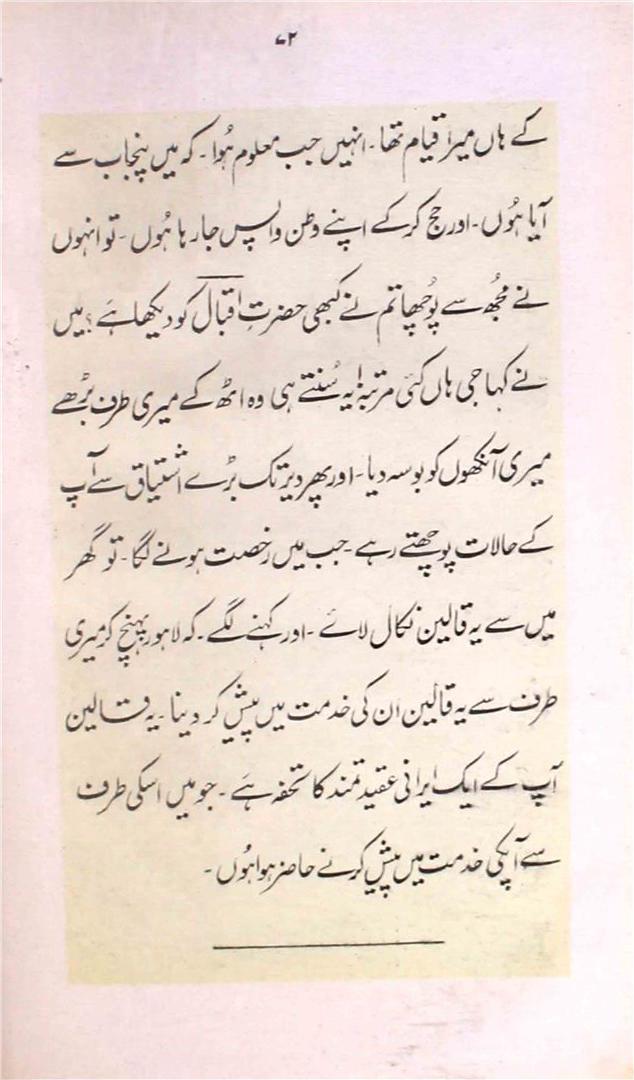 ۷۲
کے ہاں میرا قیام تھا۔ انہیں جب معلوم ہُوا۔ کہ میں پنجاب سے
آیا ہُوں۔ اور حج کرکے اپنے وطن واپس جا رہا ہُوں۔ تو انہوں
نے مجُھ سے پُوچھا تم نے کبھی حضرتِ اقبال کو دیکھا ہَے؟ میں
نے کہا جی ہاں کئی مرتبہ! یہ سُنتے ہی وہ اٹھ کے میری طرف بڑھے
میری آنکھوں کو بوسہ دیا۔ اور پھر دیر تک بڑے اشتیاق سے آپ
کے حالات پوچھتے رہے۔ جب میں رخصت ہونے لگا۔ تو گھر
میں سے یہ قالین نکال لائے۔ اور کہنے لگے۔ کہ لاہور پہنچ کر میری
طرف سے یہ قالین ان کی خدمت میں پیش کر دینا۔ یہ قالین
آپ کے ایک ایرانی عقیدتمند کا تحفہ ہَے۔ جو میں اسکی طرف
سے آپکی خدمت میں پیش کرنے حاضر ہوا ہُوں۔